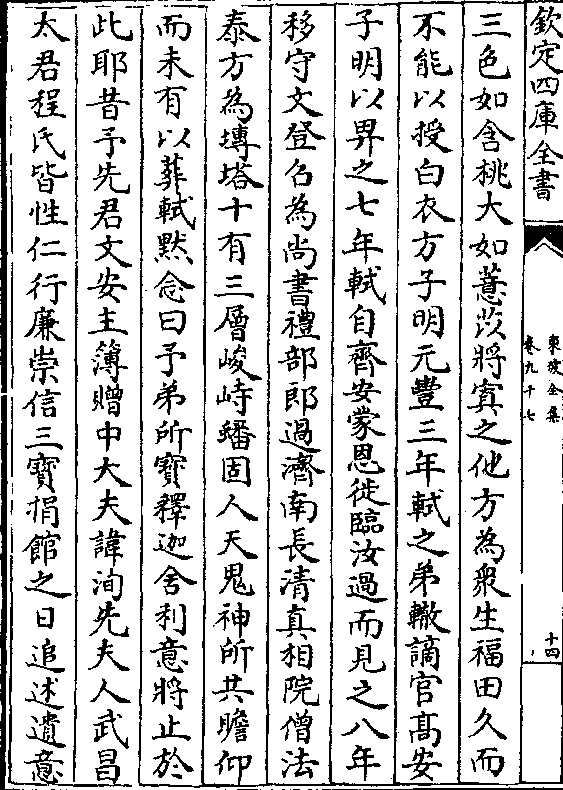 欽定四庫全書
東坡全集
卷九十七
十四
三色如含桃大如薏苡將寘之他方為衆生福田久而
不能以授白衣方子明元豐三年軾之弟轍謫官高安
子明以畀之七年軾自齊安蒙恩徙臨汝過而見之八年
移守文登召為尚書禮部郎過濟南長清真相院僧法
泰方為塼塔十有三層峻峙蟠固人天鬼神所共瞻仰
而未有以葬軾默念曰予弟所寶釋迦舍利意將止於
此耶昔予先君文安主簿贈中大夫諱洵先夫人武昌
太君程氏皆性仁行廉崇信三寶捐館之日追述遺意